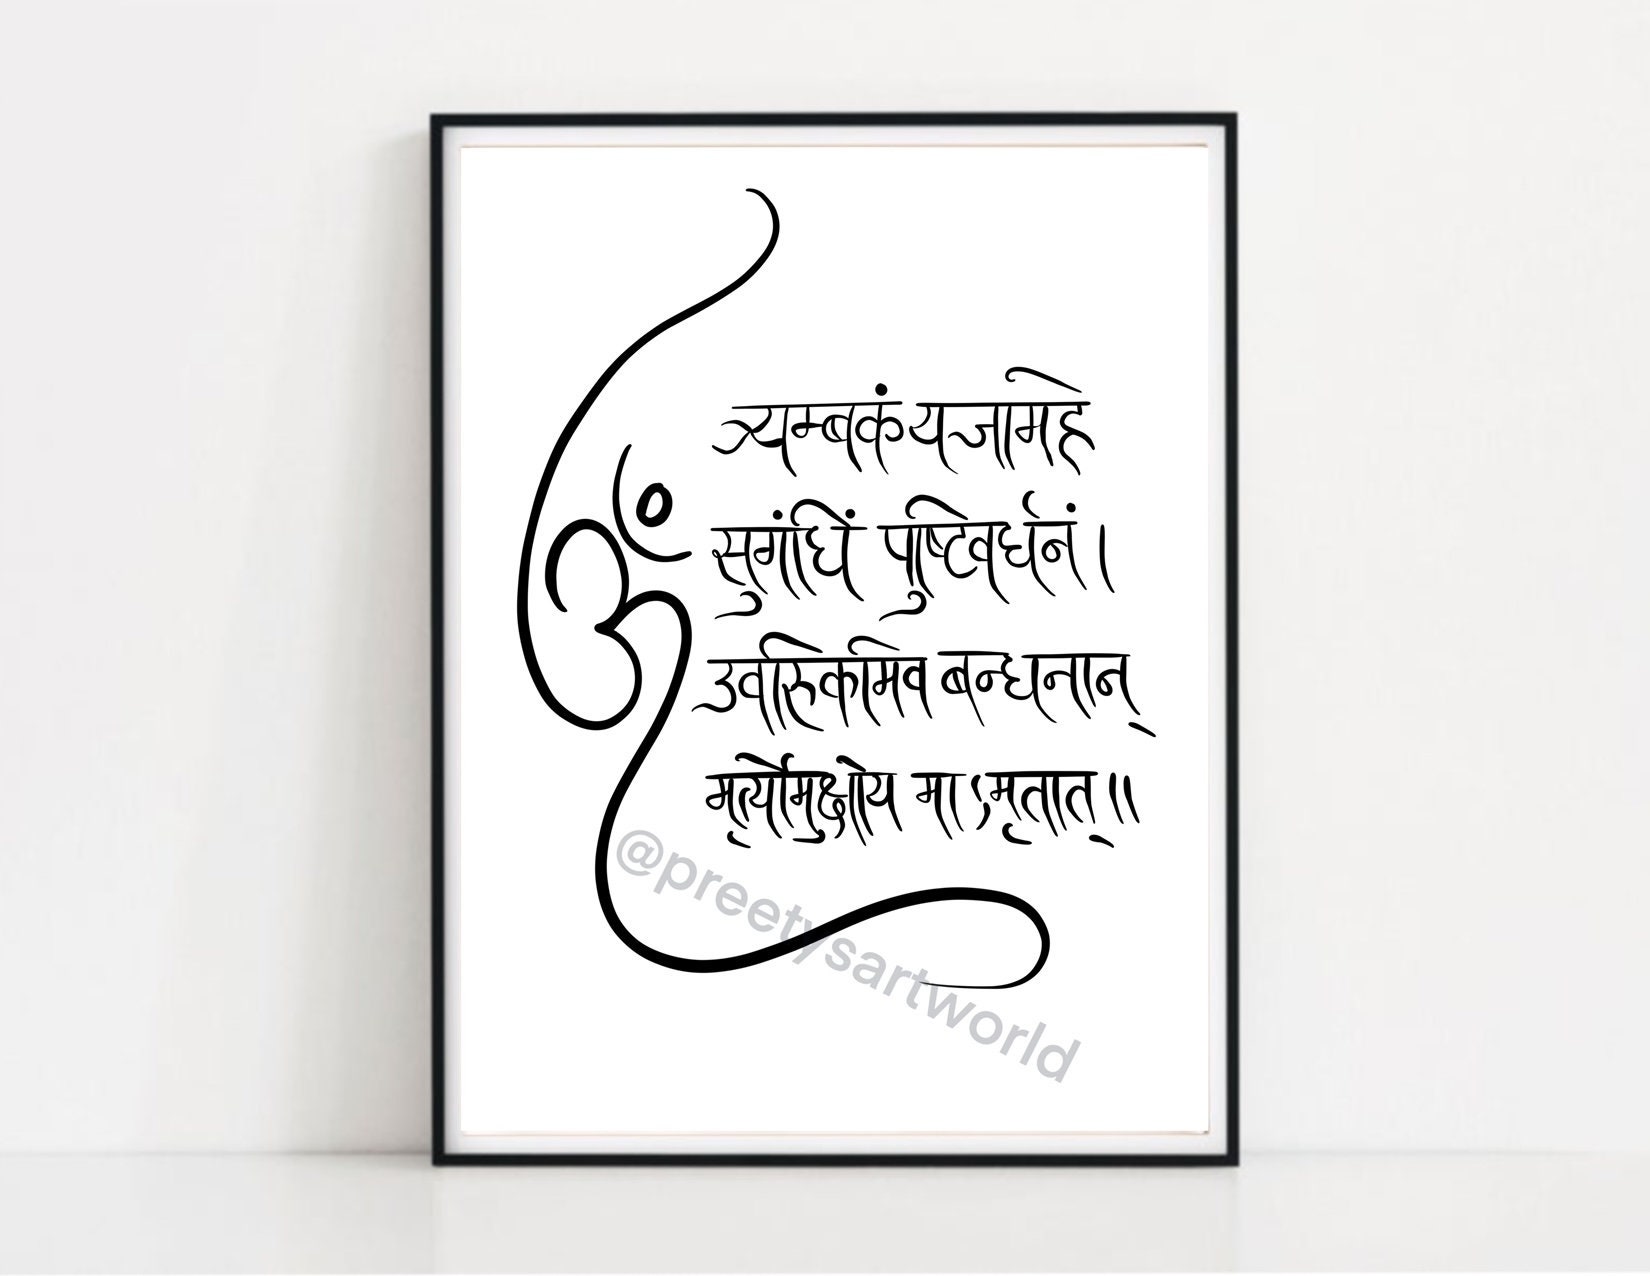 ॐ
त्र्यम्बकं यजामहे
सुगंधिं पुष्टिवर्धनं।
उर्वारुकमिव बन्धनान्
मृत्योर्मुक्षीय माऽमृतात्॥
@preetysartworld